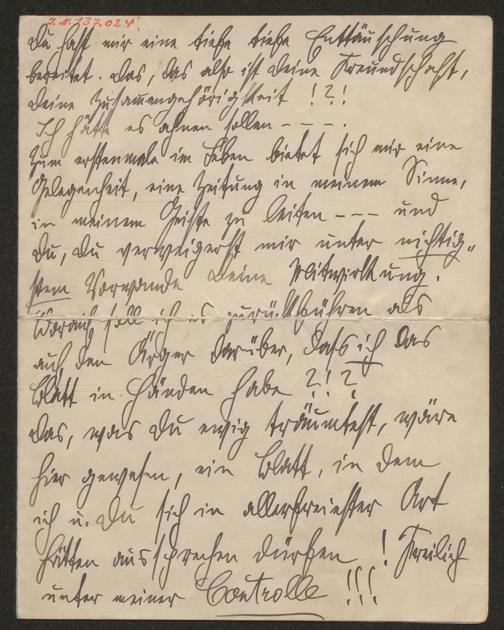 I.N. 137.024
Du hast mir eine tiefe tiefe Enttäuschung
bereitet. Das, das also ist Deine Freundschaft,
Deine Zusammengehörigkeit !?!
Ich hätte es ahnen sollen – – – .
Zum erstenmale im Leben bietet sich mir eine
Gelegenheit, eine Zeitung in meinem Sinne,
in meinem Geiste zu leiten – – – und
Du, Du verweigerst mir unter nichtig-
stem Vorwande Deine Mitwirkung.
Worauf soll ich es zurückführen als
auf den Ärger darüber, dass ich das
Blatt in Händen habe ?!?
Das, was Du ewig träumtest, wäre
hier gewesen, ein Blatt, in dem
ich u. Du sich in allerfreiester Art
hätten aussprechen dürfen ! Freilich
unter meiner Controlle !!!